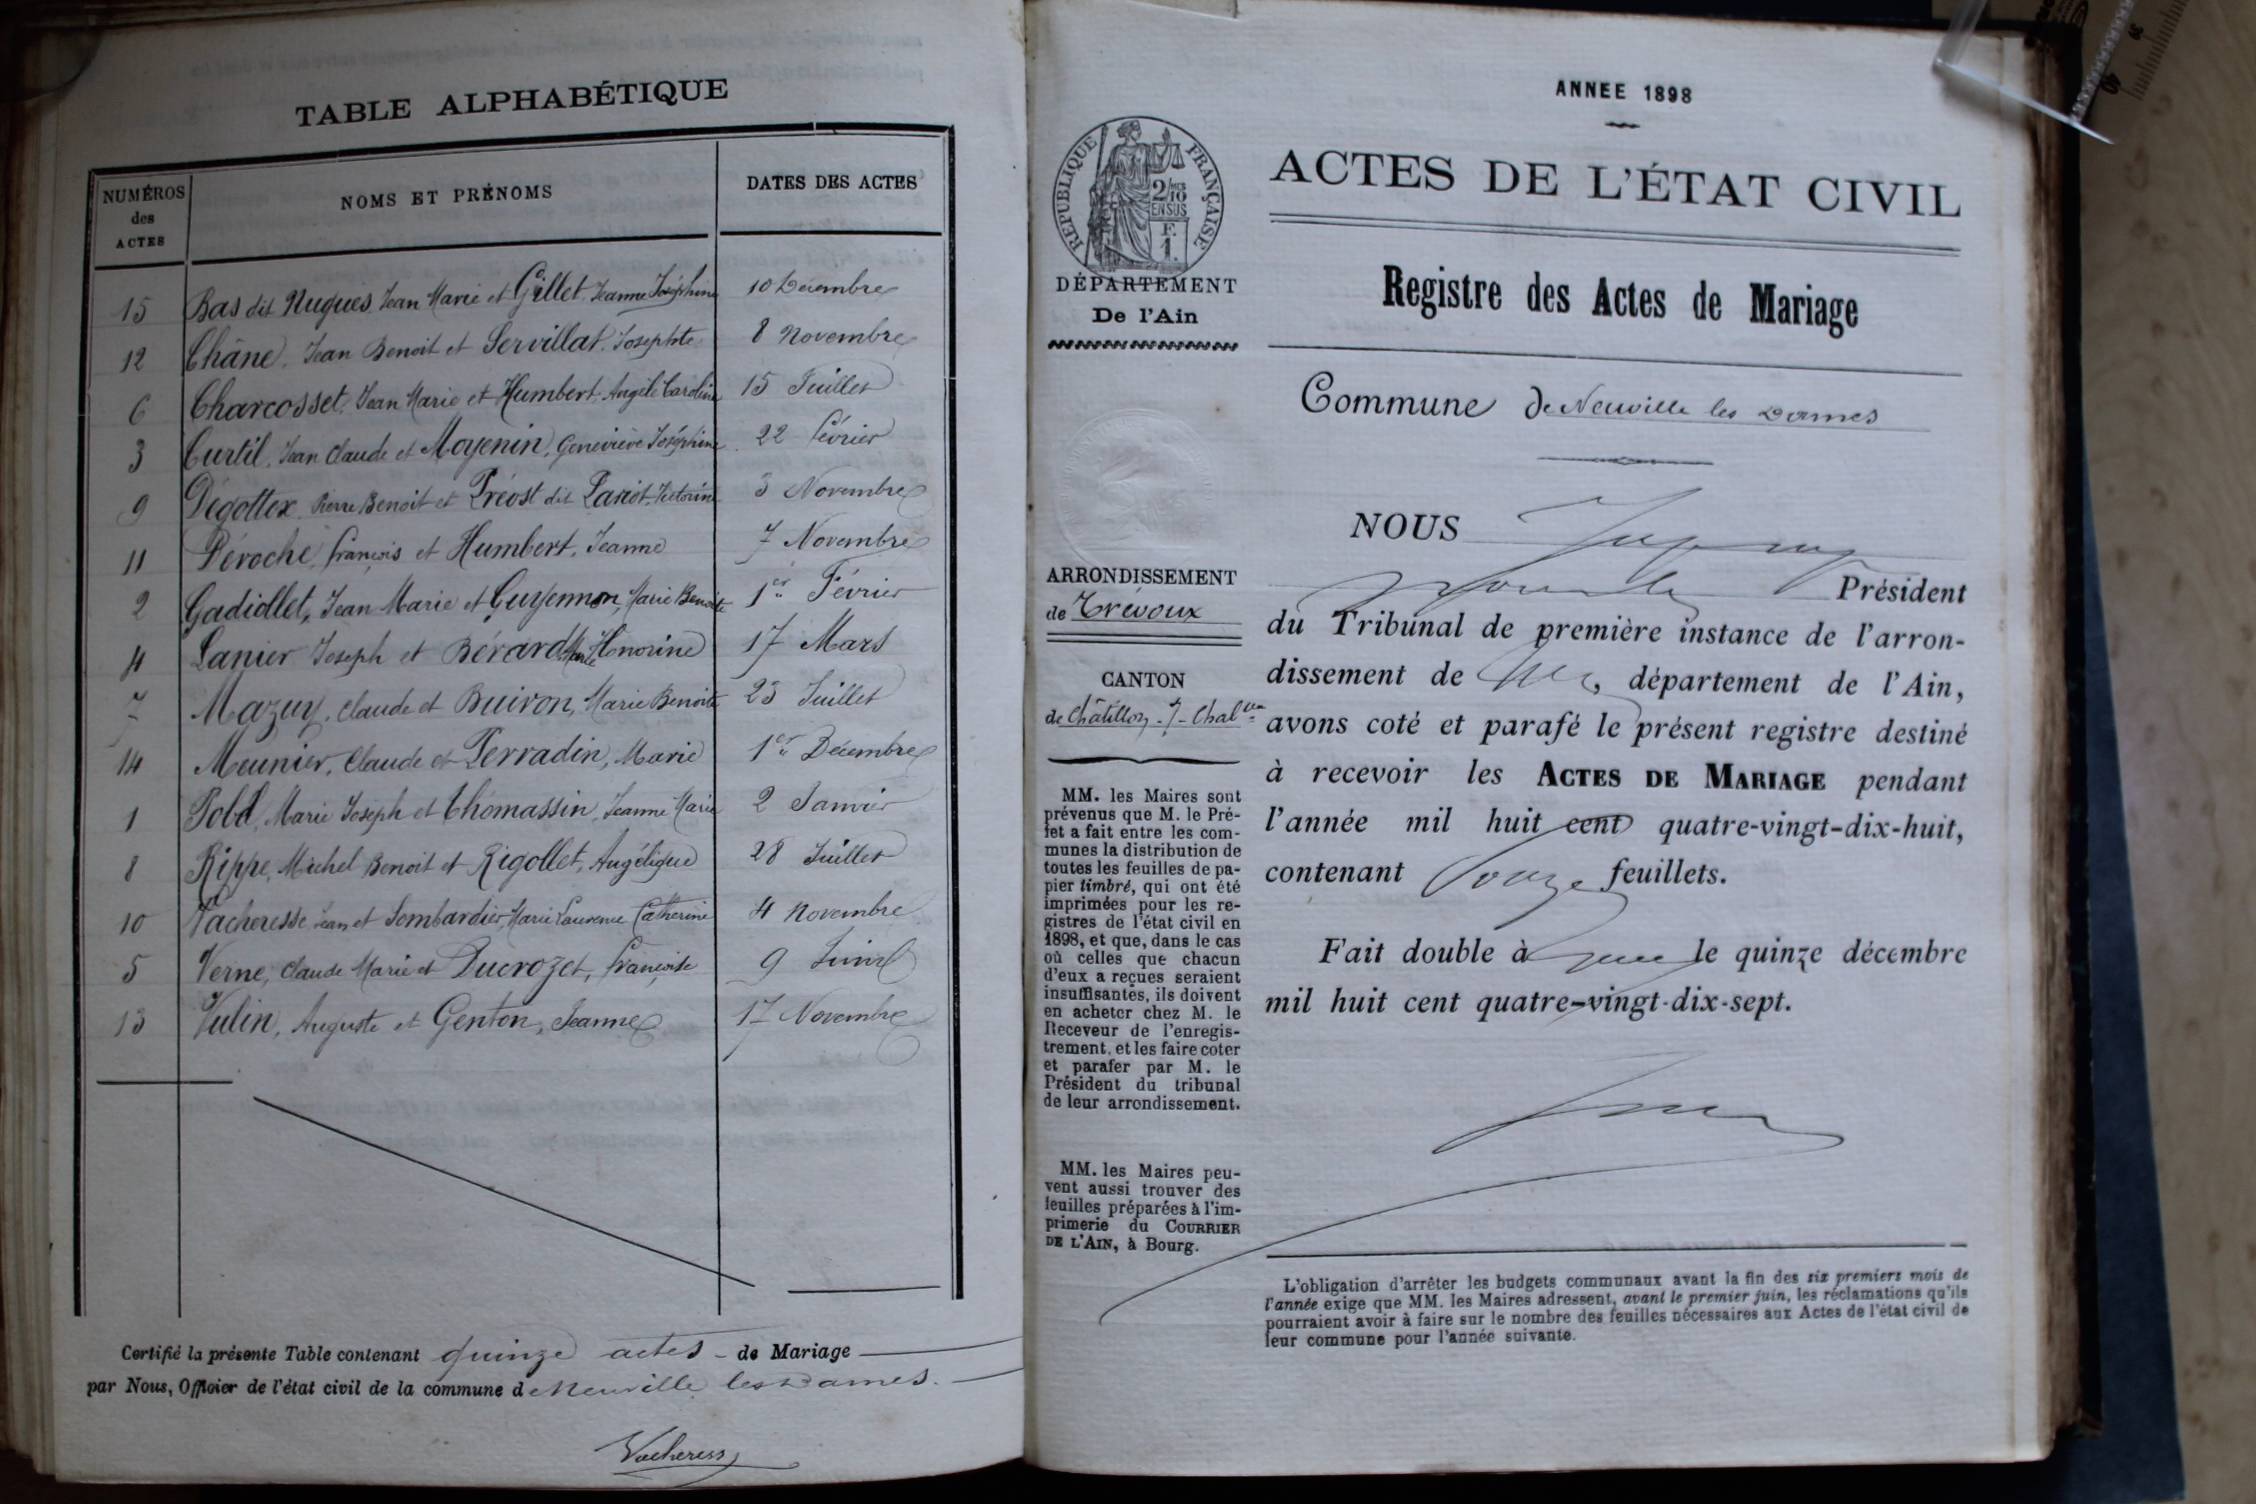 TABLE ALPHABÉTIQUE
NUMÉROS des ACTES
NOMS ET PRÉNOMS
DATES DES ACTES
15 Bas dit Nugues Jean Marie et Gillet, Jeanne Joséphine 10 Décembre
12 Châne, Jean Benoit et Servillat, Josephte 8 Novembre
6 Charcosset, Jean Marie et Humbert, Angèle Caroline 15 Juillet
3 Curtil, Jean Claude et Moyenin, Geneviève Joséphine 22 Février
9 Dégottex, Pierre Benoit et Préost dit 3 Novembre
11 Péroche, François et Humbert, Jeanne 7 Novembre
2 Gadiollet, Jean Marie et Guyennon, Marie Benoite 1er Février
4 Lanier Joseph et Bérard Marie Honorine 17 Mars
7 Mazuy, Claude et Buiron, Marie Benoite 23 Juillet
14 Meunier, Claude et Perradin, Marie 1er Décembre
1 Marie Joseph et Thomassin, Jeanne Marie 2 Janvier
8 Rippe, Michel Benoit et Rigollet, Angélique 28 Juillet
10 Vacheresse Jean et Lombardier, Marie Laurence Catherine 4 Novembre
5 Verne, Claude Marie et Ducrozet, Françoise 9 Juin
13 Vulin, Auguste et Genton, Jeanne 17 Novembre
Certifié la présente Table contenant quinze actes de Mariage
par Nous, Officier de l'état civil de la commune de Neuville les Dames.
Vacheress
ANNEE 1898
RÉPUBLIQUE FRANÇAISE
2/10
EN SUS
F.
1.
DÉPARTEMENT
De l'Ain
ARRONDISSEMENT
de Trévoux
CANTON
de Châtillon-s-Chalne
MM. les Maires sont
prévenus que M. le Pré-
fet a fait entre les com-
munes la distribution de
toutes les feuilles de pa-
pier timbré, qui ont été
imprimées pour les re-
gistres de l'état civil en
1898, et que, dans le cas
où celles que chacun
d'eux a reçues seraient
insuffisantes, ils doivent
en acheter chez M. le
Receveur de l'enregis-
trement, et les faire coter
et parafer par M. le
Président du tribunal
de leur arrondissement.
MM. les Maires peu-
vent aussi trouver des
feuilles préparées à l'im-
primerie du COURRIER
DE L'AIN, à Bourg.
ACTES DE L'ÉTAT CIVIL
Registre des Actes de Mariage
Commune de Neuville les Dames
NOUS
Président
du Tribunal de première instance de l'arron-
dissement de , département de l'Ain,
avons coté et parafé le présent registre destiné
à recevoir les ACTES DE MARIAGE pendant
l'année mil huit cent quatre-vingt-dix-huit,
contenant feuillets.
Fait double à le quinze décembre
mil huit cent quatre-vingt-dix-sept.
L'obligation d'arrêter les budgets communaux avant la fin des six premiers mois de
l'année exige que MM. les Maires adressent, avant le premier juin, les réclamations qu'ils
pourraient avoir à faire sur le nombre des feuilles nécessaires aux Actes de l'état civil de
leur commune pour l'année suivante.